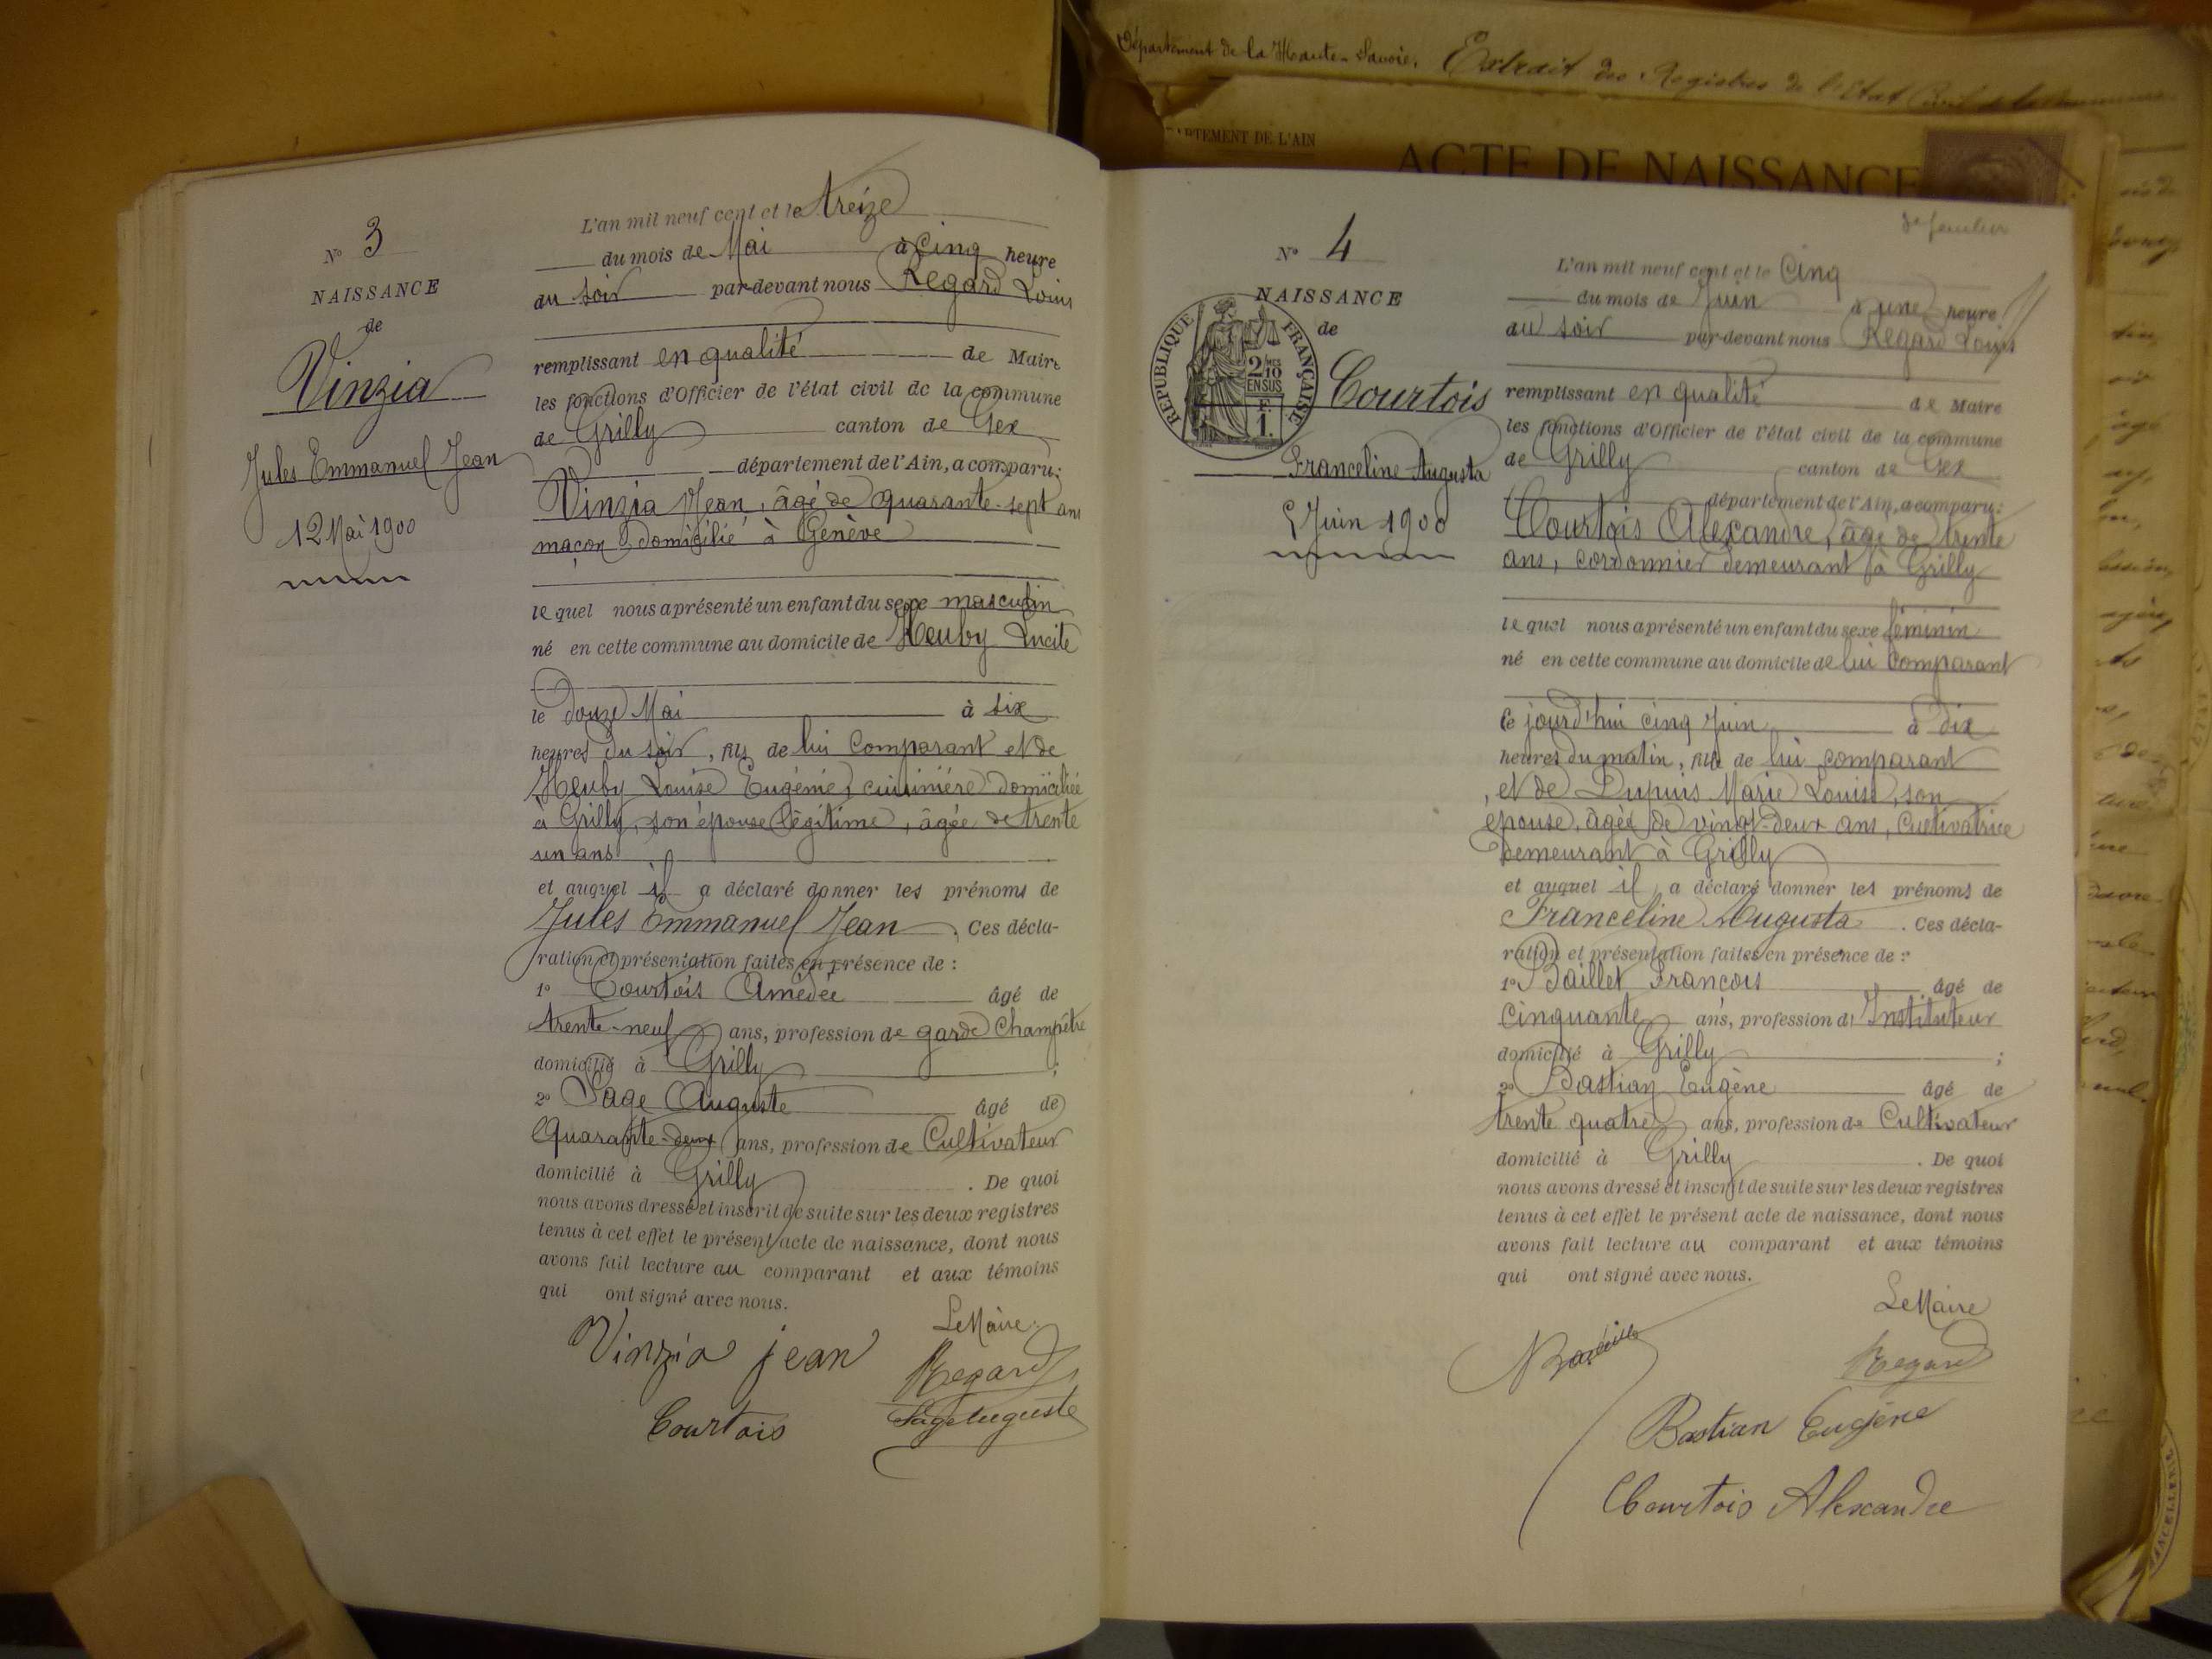 Département de la Haute-Savoie. Extrait des Registres de l'Etat Civil de la
DEPARTEMENT DE L'AIN
ACTE DE NAISSANCE
N° 3
NAISSANCE
de
Vinzia
Jules Emmanuel Jean
12 Mai 1900
L'an mil neuf cent et le treize
du mois de Mai à Cinq heure
du soir par-devant nous Regard Louis
remplissant en qualité de Maire
les fonctions d'Officier de l'état civil de la commune
de Grilly canton de Gex
département de l'Ain, a comparu:
Vinzia Jean, âgé de quarante-sept ans
maçon domicilié à Genève
le quel nous a présenté un enfant du sexe masculin
né en cette commune au domicile de Heuby Lucite
le douze Mai à six
heures du soir, fils de lui Comparant et de
Heuby Louise Eugénie, cuisinière domiciliée
à Grilly, son épouse légitime, âgée de trente
un ans
et auquel il a déclaré donner les prénoms de
Jules Emmanuel Jean. Ces décla-
ration et présentation faites en présence de :
1° Courtois Amédée âgé de
trente-neuf ans, profession de garde Champêtre
domicilié à Grilly ;
2° Sage Auguste âgé de
Quarante-deux ans, profession de Cultivateur
domicilié à Grilly . De quoi
nous avons dressé et inscrit de suite sur les deux registres
tenus à cet effet le présent acte de naissance, dont nous
avons fait lecture au comparant et aux témoins
qui ont signé avec nous.
Le Maire
Vinzia jean Regard
Courtois Sage Auguste
N° 4
NAISSANCE
de
REPUBLIQUE FRANÇAISE
2/10
EN SUS
F.
1.
Courtois
Franceline Augusta
5 Juin 1900
L'an mil neuf cent et le Cinq
du mois de Juin à une heure
du soir par-devant nous Regard Louis
remplissant en qualité de Maire
les fonctions d'Officier de l'état civil de la commune
de Grilly canton de Gex
département de l'Ain, a comparu:
Courtois Alexandre, âgé de trente
ans, cordonnier demeurant à Grilly
le quel nous a présenté un enfant du sexe féminin
né en cette commune au domicile de lui Comparant
le jourd'hui cinq Juin à dix
heures du matin, fille de lui comparant
, et de Dupuis Marie Louise, son
épouse, âgée de vingt-deux ans, Cultivatrice
demeurant à Grilly
et auquel il a déclaré donner les prénoms de
Franceline Augusta . Ces décla-
ration et présentation faites en présence de :
1° Baillet François âgé de
Cinquante ans, profession d'Instituteur
domicilié à Grilly ;
2° Bastian Eugène âgé de
trente quatre ans, profession de Cultivateur
domicilié à Grilly . De quoi
nous avons dressé et inscrit de suite sur les deux registres
tenus à cet effet le présent acte de naissance, dont nous
avons fait lecture au comparant et aux témoins
qui ont signé avec nous.
Le Maire
Regard
Bastian Eugène
Courtois Alexandre